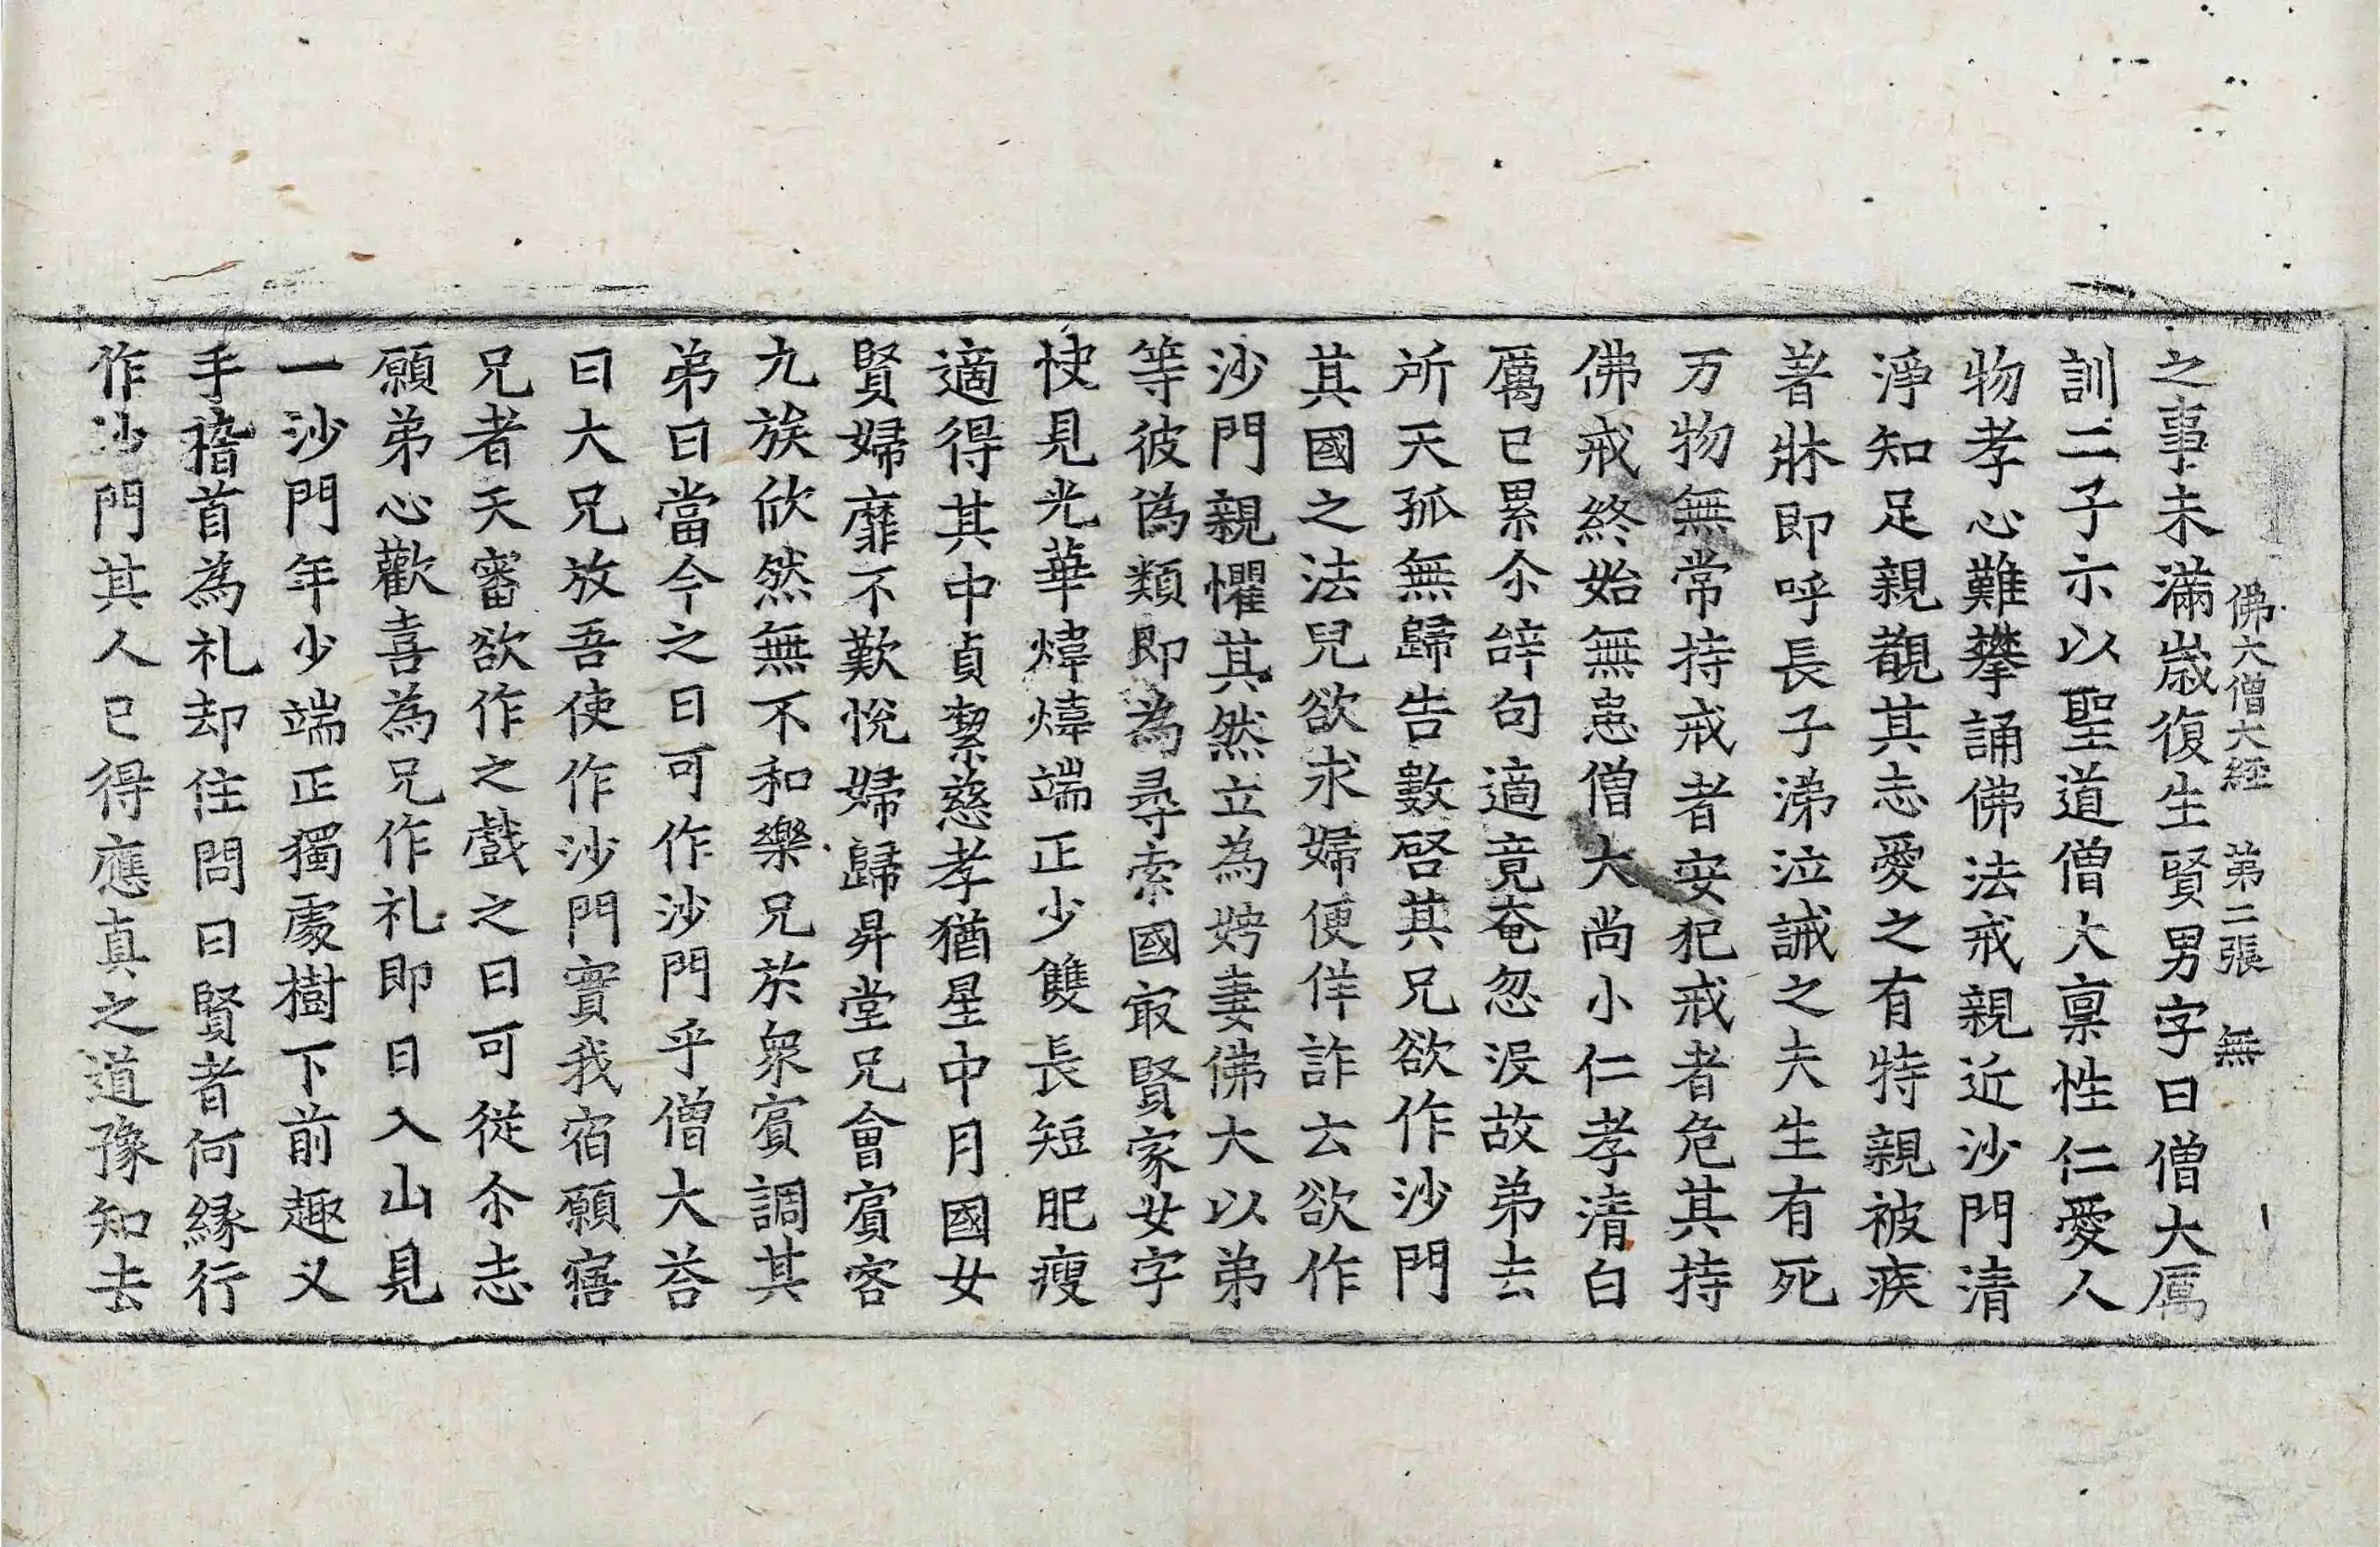 佛大僧大經 第二張 無
之事未滿歲復生賢男字曰僧大厲
訓二子示以聖道僧大稟性仁愛人
物孝心難攀誦佛法戒親近沙門清
淨知足親觀其志愛之有特親被疾
著牀即呼長子涕泣誡之夫生有死
万物無常持戒者安犯戒者危其持
佛戒終始無患僧大尚小仁孝清白
厲已累尒辝句適竟奄忽没故弟去
所天孤無歸告數啓其兄欲作沙門
其國之法兒欲求婦便佯詐云欲作
沙門親懼其然立為娉妻佛大以弟
等彼偽類即為尋索國㝡賢家女字
快見光華煒煒端正少雙長短肥瘦
適得其中貞絜慈孝猶星中月國女
賢婦靡不歎悅婦歸昇堂兄會賔客
九族欣然無不和樂兄於衆賔調其
弟曰當今之日可作沙門乎僧大荅
曰大兄放吾使作沙門實我宿願㝛
兄者天審欲作之戲之曰可從尒志
願弟心歡喜為兄作礼即日入山見
一沙門年少端正獨處樹下前趣义
手稽首為礼却住問曰賢者何緣行
作沙門其人已得應真之道豫知去